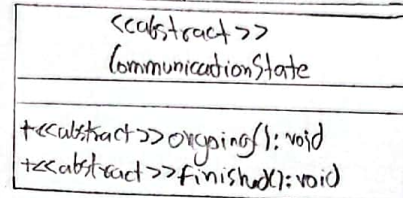 <<abstract>>
CommunicationState
+<<abstract>>ongoing(): void
+<<abstract>>finished(): void